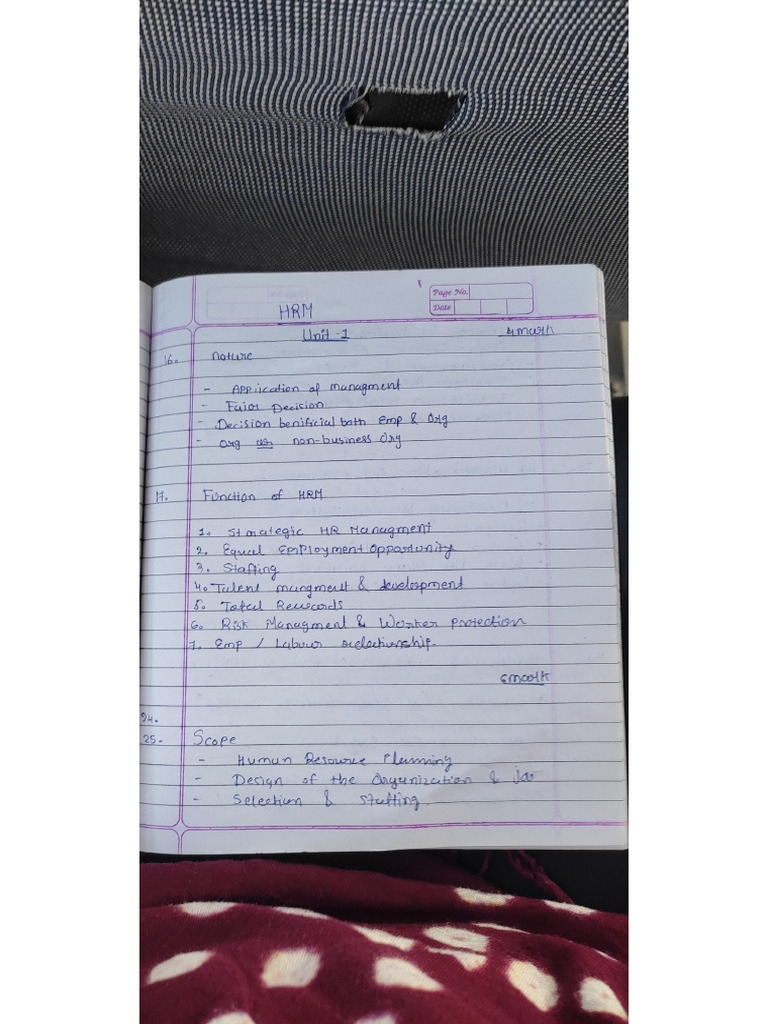 Page No.
Date
HRM
Unit-1
4mark
16. nature
- Application of managment
- Faior Decision
- Decision benificial both Emp & Org
- org non-business Org
17. Function of HRM
1. Strategic HR Managment
2. Equal Employment Opportunity
3. Staffing
4. Talent mangment & development
5. Total Rewards
6. Risk Managment & Worker Protection
7. Emp / Labour relationship.
6mark
24.
25. Scope
- Human Resource Planning
- Design of the Organization &
- Selection & Staffing.